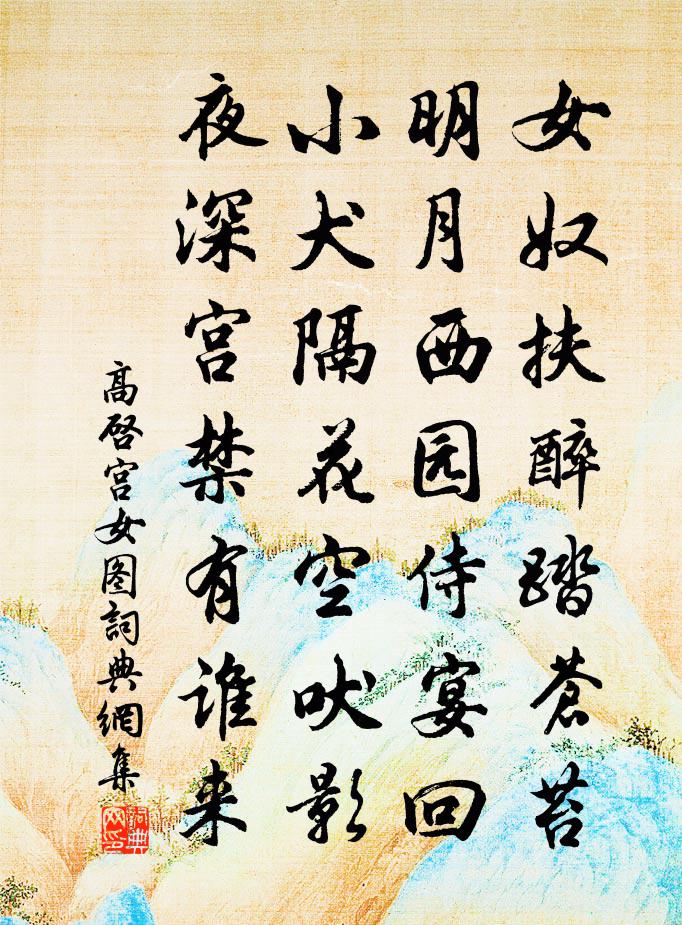 女奴扶醉踏蒼苔
明月西园侍宴回
小犬隔花空吠影
夜深宫禁有谁来
高啓宫女图詞典網集
詞典网印